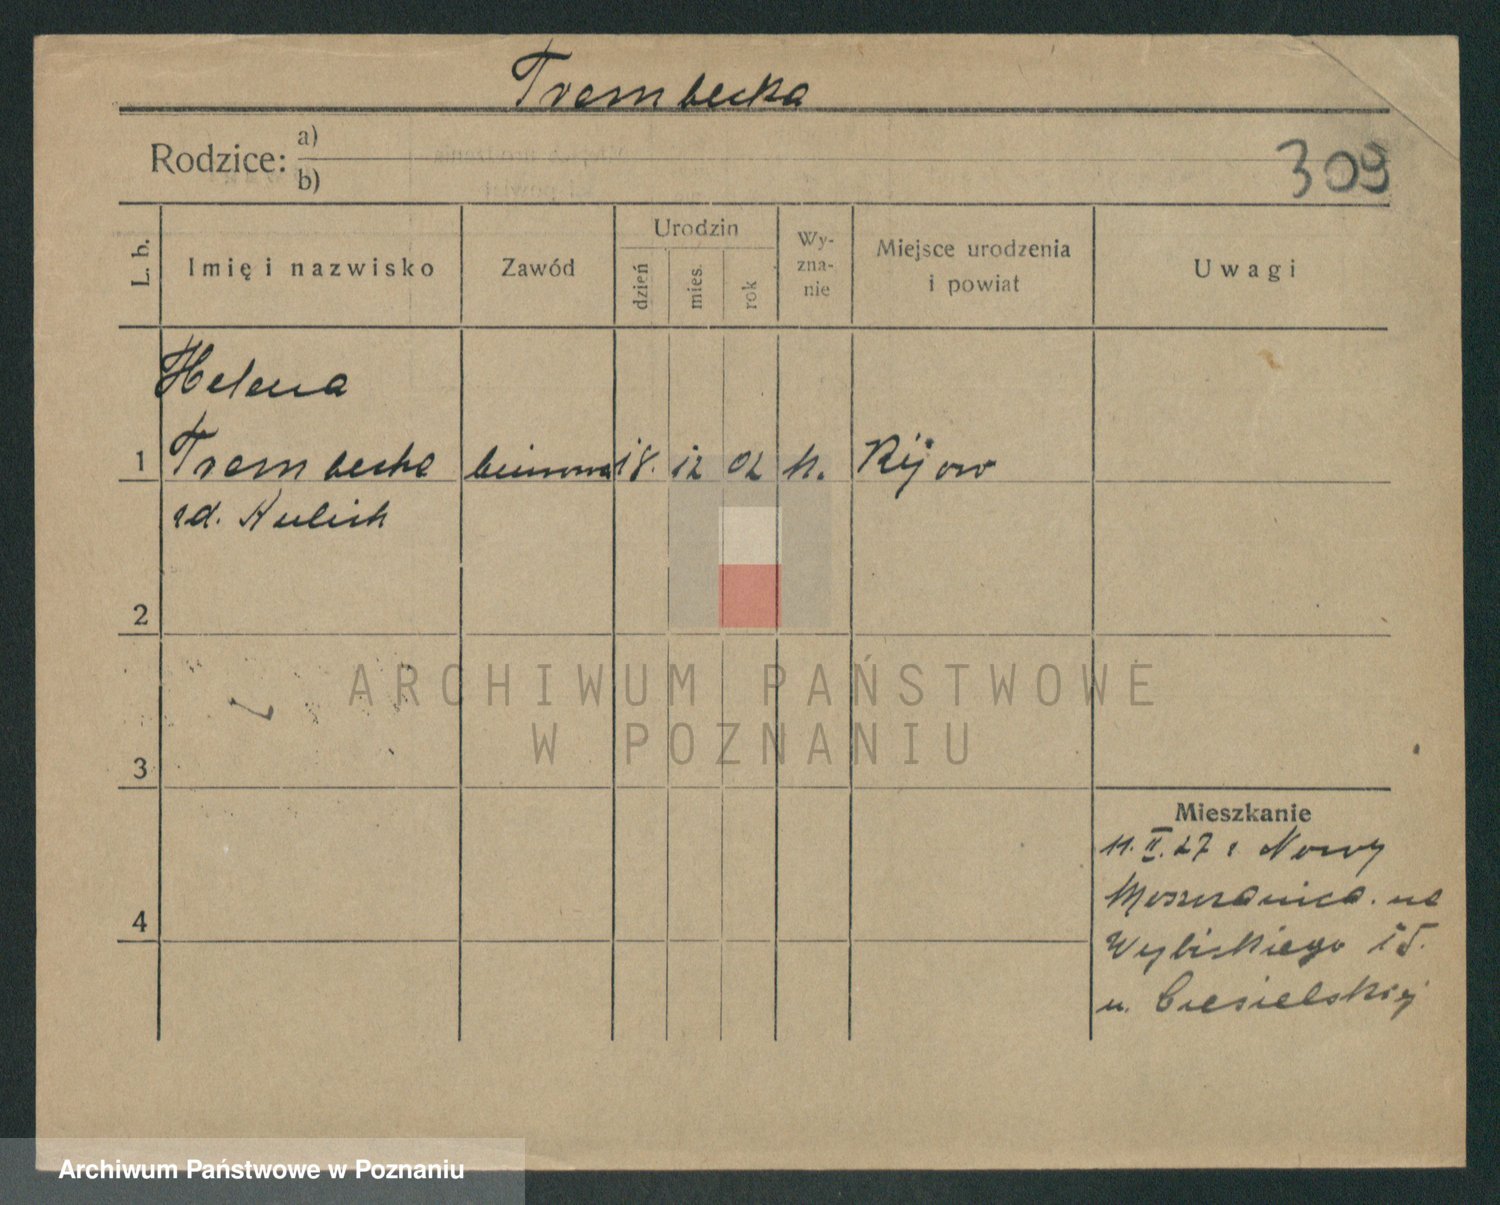 Trembecka
Rodzice: a)
b)
309
L. b.
Imię i nazwisko
Zawód
Urodzin
dzień
mies.
rok
Wy-
zna-
nie
Miejsce urodzenia
i powiat
Uwagi
Helena
1 Trembecka 18. 12 02 Kijow
zd. Kulich
2
ARCHIWUM PAŃSTWOWE
W POZNANIU
3
Mieszkanie
11. II. 27 z Nowy
4
Wybickiego 15.
u. Ciesielskiej
Archiwum Państwowe w Poznaniu